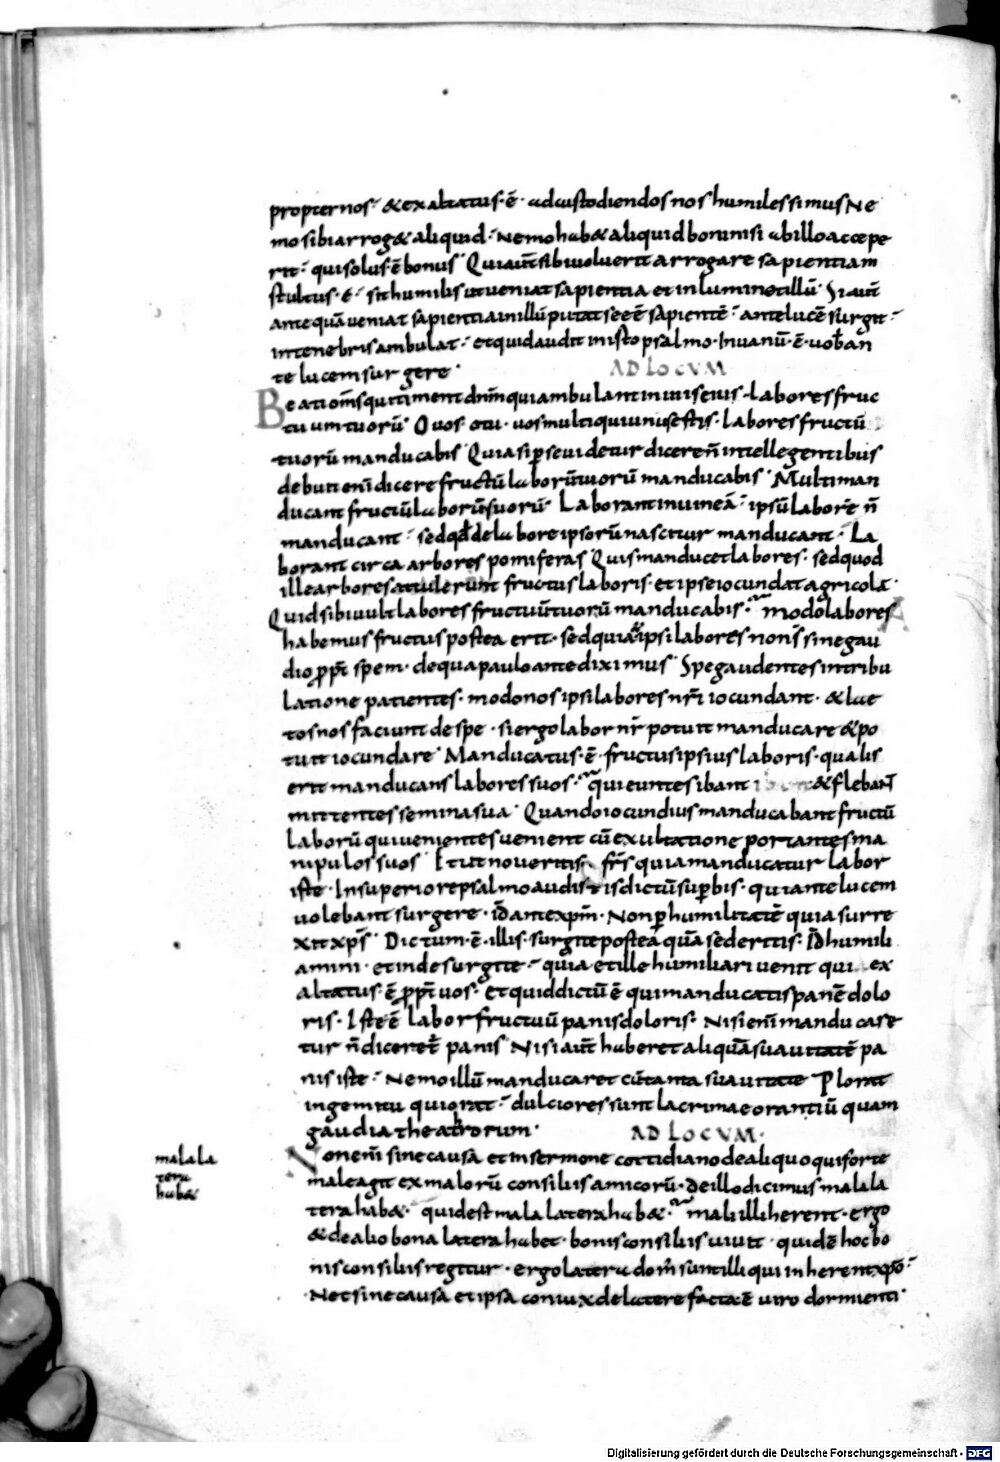 propter nos· & exaltatus· ē· ad custodiendos nos humiles simus Ne
mo sibi arrog& aliquid· Nemo hab& aliquid boni nisi ab illo accepe
rit· qui solus· ē bonus· Qui aut̄ sibi voluerit arrogare sapientiam
stultus· ē· sit humilis ut veniat sapientia et inluminet illū· Si aut̄
antequā veniat sapientia in illū putat se eē sapientē· ante lucē surgit·
in tenebris ambulat· et quid audit in isto psalmo· In vanū· ē· vob̄ an
te lucem surgere·
AD LOCUM
Beati om̄s qui timent dn̄m qui ambulant in viis eius· Labores fruc
tuum tuorū· O vos· o tu· vos multi qui unus estis· Labores fructū
tuorū manducabis· Quasi p̄se videtur dicere n̄ intellegentibus
debuit eni᷃ dicere fructū laborū tuorū manducabis· Multi man
ducant fructū laborū suorū· Laborant in vineā· ipsū laborē n̄
manducant· sed qd̄ de labore ipsorū nascitur manducant· La
borant circa arbores pomiferas Quis manducet labores· sed quod
ille arbores attulerunt fructus laboris· et ipse iocundat agricolā·
Quid sibi vult labores fructuū tuorū manducabis· modo labores
habemus fructus postea erit· sed quia & ipsi labores non s̄ sine gau
dio pp̄t spem· de qua paulo ante diximus· Spe gaudentes in tribu
latione patientes· modo nos ipsi labores nr̄i iocundant· & lae
tos nos faciunt de spe· si ergo labor nr̄ potuit manducare & po
tuit iocundare· Manducatus· ē· fructus ipsius laboris· qualis
erit manducans labores suos· qui euntes ibant & flebant
mittentes semina sua· Quando iocundius manducabant fructū
laborū qui venientes venient cū exultatione portantes ma
nipulos suos· Et ut noveritis· fr̄s quia manducatur labor
iste· In superiore psalmo audistis dictū superbis· qui ante lucem
volebant surgere· id̄ ante xpm̄· Non p̄ humilitatē qua surre
xit xps̄· Dictum· ē· illis· surgite posteā quā sederitis· Id̄ humili
amini· et inde surgite· quia et ille humiliari venit qui ex
altatus· ē pp̄t vos· et quid dictū ē qui manducatis panē dolo
ris· Iste ē labor fructuū panis doloris· Nisi eni᷃ manducare
tur n̄ diceret̄ panis· Nisi aut̄ haberet aliquā suavitatē pa
nis iste· Nemo illū manducaret cū tanta suavitate Plorat
in gemitu qui orat· dulciores sunt lacrimae orantiū quam
gaudia theatrorum·
AD LOCUM·
Non eni᷃ sine causā et in sermone cottidiano de aliquo qui forte
male agit ex malorū consiliis amicorū· de illo dicimus mala la
tera hab&· quid est mala latera hab&· mali illi herent· ergo
& de alio bona latera habet· bonis consiliis vivit· quid ē hoc bo
nis consiliis regitur· ergo latera dom̄ sunt illi qui inherent xpō·
Nec sine causā et ipsā coniux de latere facta ē viro dormienti·
mala la
tera
hab&
Digitalisierung gefördert durch die Deutsche Forschungsgemeinschaft - DFG